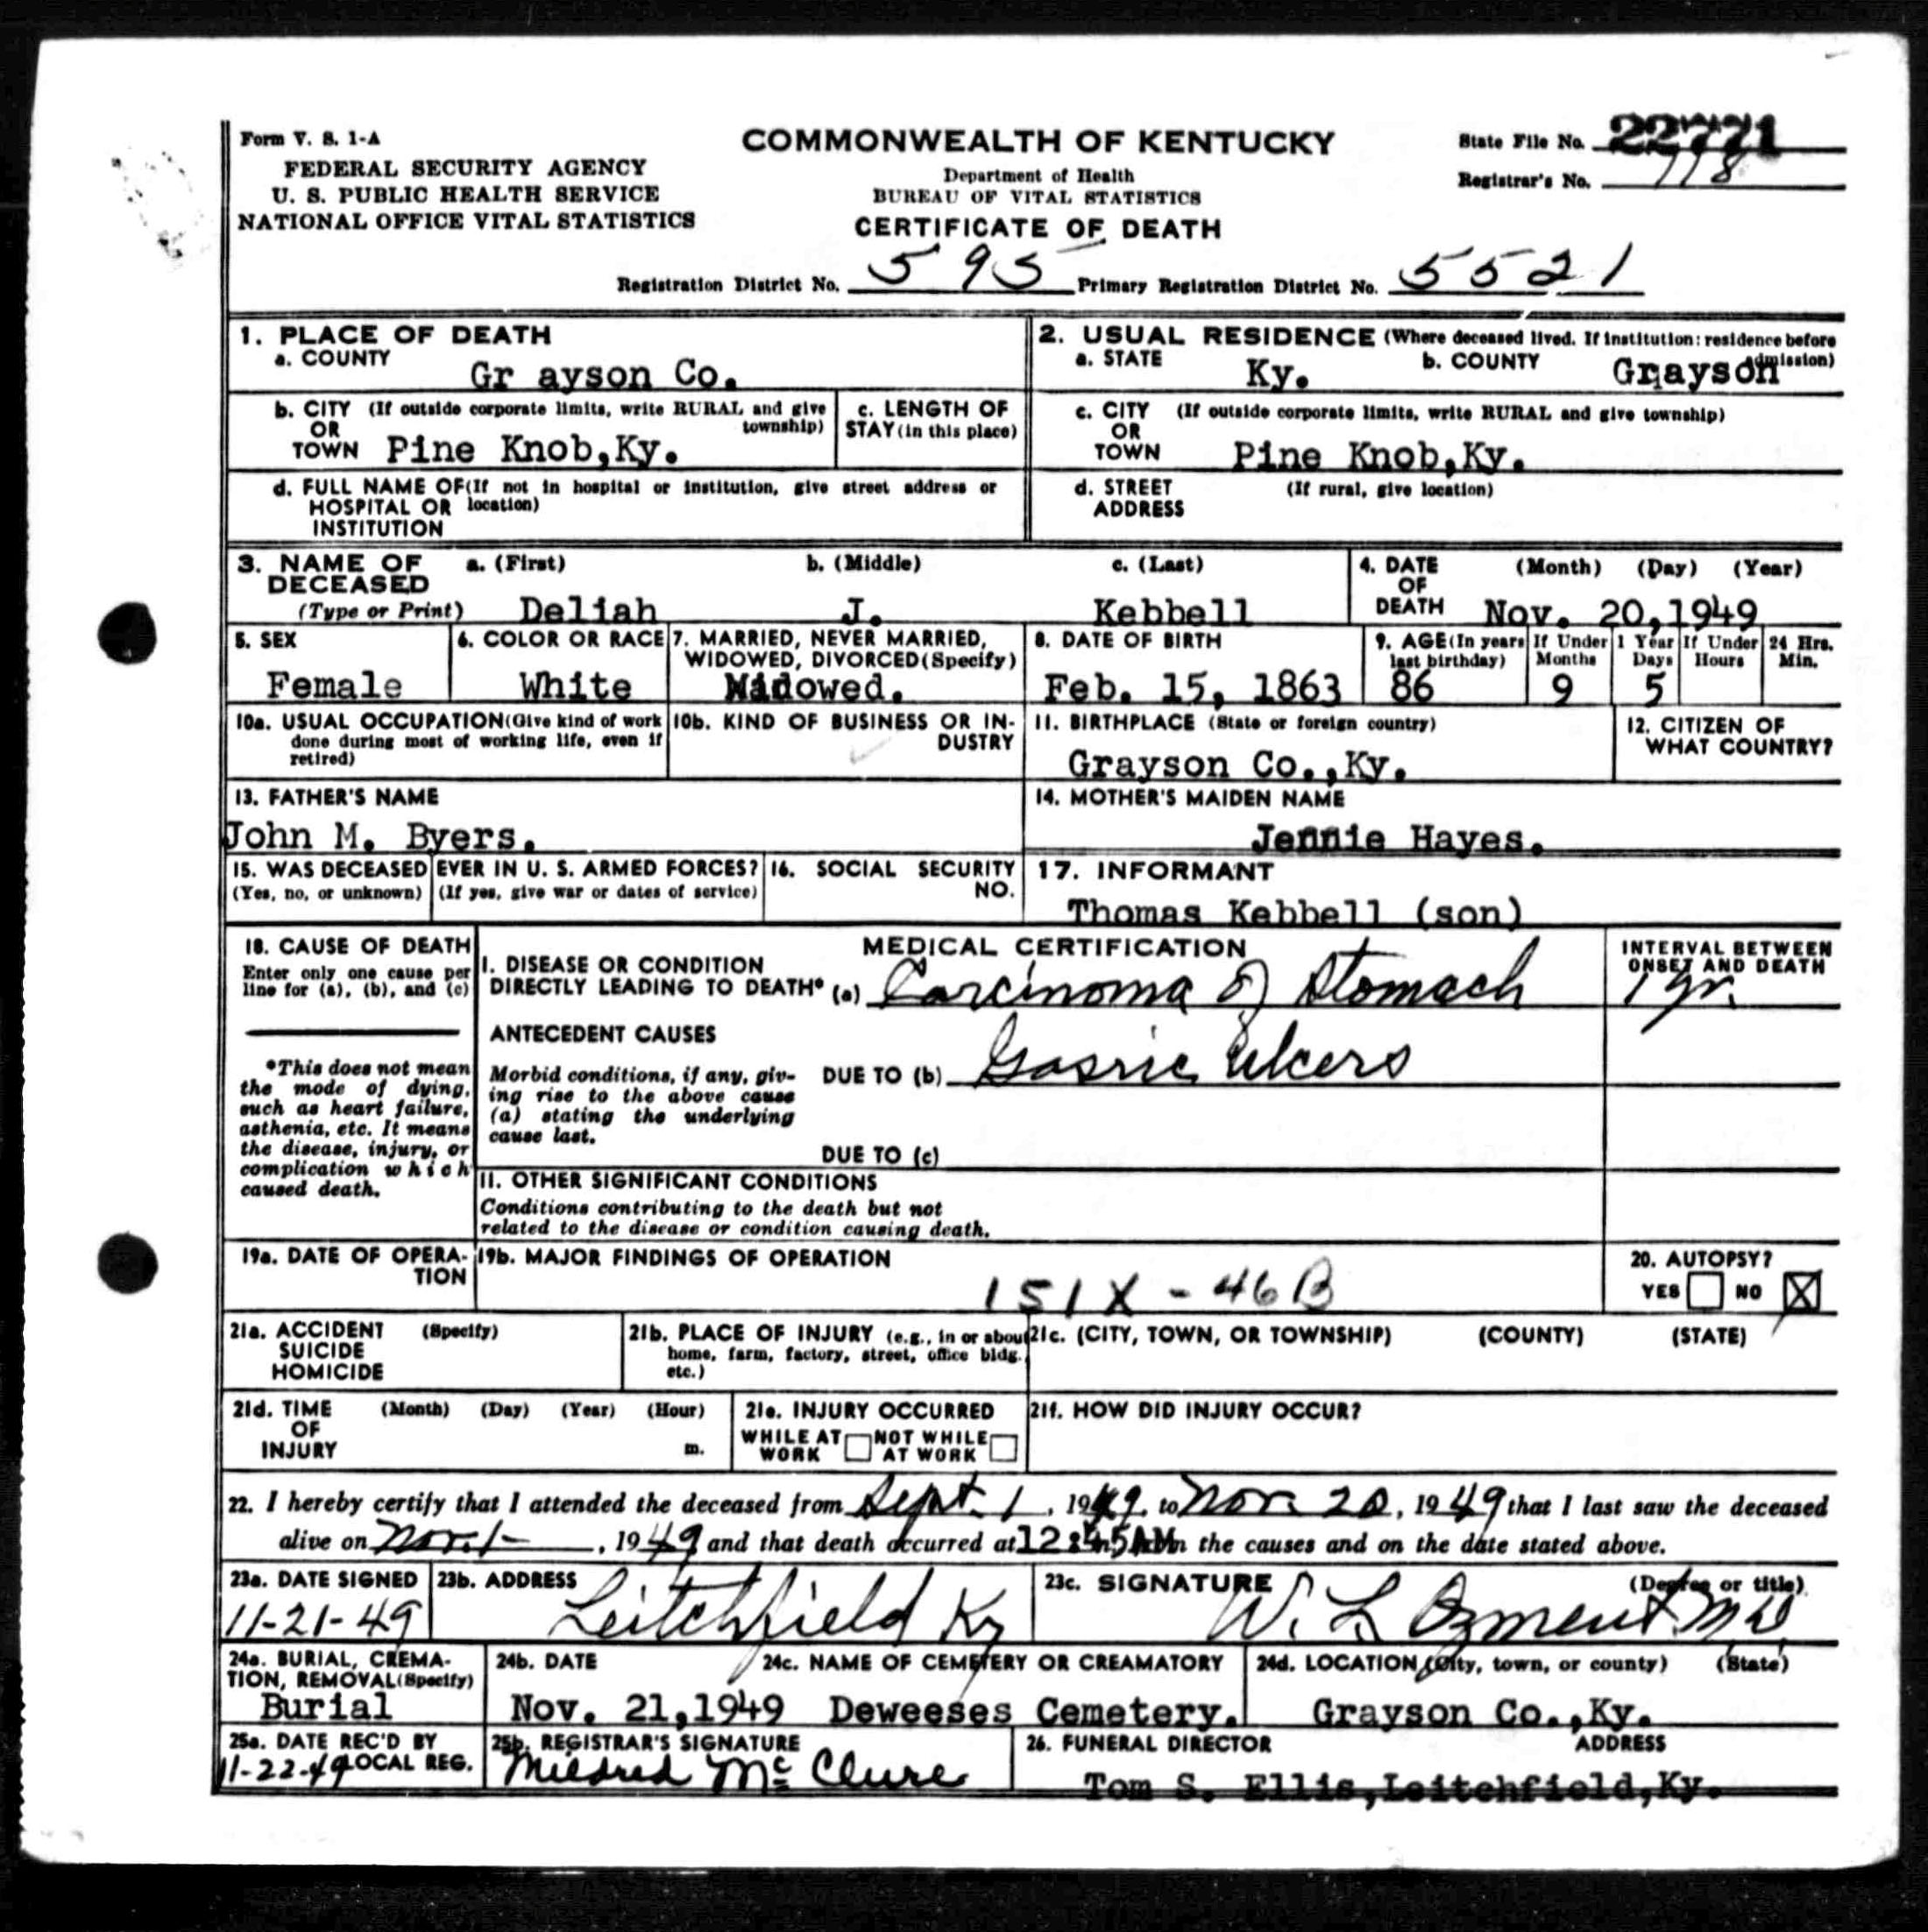 Form V. S. 1-A
FEDERAL SECURITY AGENCY
U. S. PUBLIC HEALTH SERVICE
NATIONAL OFFICE VITAL STATISTICS
COMMONWEALTH OF KENTUCKY
Department of Health
BUREAU OF VITAL STATISTICS
CERTIFICATE OF DEATH
State File No. 22771
Registrar's No. 118
Registration District No. 595 Primary Registration District No. 5521
1. PLACE OF DEATH
a. COUNTY
Gr ayson Co.
2. USUAL RESIDENCE (Where deceased lived. If institution: residence before admission)
a. STATE Ky. b. COUNTY Grayson
b. CITY (If outside corporate limits, write RURAL and give township)
OR
TOWN Pine Knob,Ky.
c. LENGTH OF
STAY (in this place)
c. CITY (If outside corporate limits, write RURAL and give township)
OR
TOWN Pine Knob,Ky.
d. FULL NAME OF (If not in hospital or institution, give street address or
HOSPITAL OR location)
INSTITUTION
d. STREET (If rural, give location)
ADDRESS
3. NAME OF DECEASED
(Type or Print)
a. (First) b. (Middle) c. (Last)
Deliah J. Kebbell
4. DATE OF DEATH (Month) (Day) (Year)
Nov. 20,1949
5. SEX
Female
6. COLOR OR RACE
White
7. MARRIED, NEVER MARRIED,
WIDOWED, DIVORCED (Specify)
Widowed.
8. DATE OF BIRTH
Feb. 15, 1863
9. AGE (In years last birthday)
86
If Under 1 Year
Months Days
9 5
If Under 24 Hrs.
Hours Min.
10a. USUAL OCCUPATION (Give kind of work
done during most of working life, even if
retired)
10b. KIND OF BUSINESS OR IN-
DUSTRY
11. BIRTHPLACE (State or foreign country)
Grayson Co.,Ky.
12. CITIZEN OF
WHAT COUNTRY?
13. FATHER'S NAME
John M. Byers.
14. MOTHER'S MAIDEN NAME
Jennie Hayes.
15. WAS DECEASED EVER IN U. S. ARMED FORCES?
(Yes, no, or unknown) (If yes, give war or dates of service)
16. SOCIAL SECURITY
NO.
17. INFORMANT
Thomas Kebbell (son)
18. CAUSE OF DEATH
Enter only one cause per
line for (a), (b), and (c)
*This does not mean
the mode of dying,
such as heart failure,
asthenia, etc. It means
the disease, injury, or
complication which
caused death.
MEDICAL CERTIFICATION
I. DISEASE OR CONDITION
DIRECTLY LEADING TO DEATH* (a) Carcinoma of Stomach
INTERVAL BETWEEN
ONSET AND DEATH
1 yr.
ANTECEDENT CAUSES
Morbid conditions, if any, giv-
ing rise to the above cause
(a) stating the underlying
cause last.
DUE TO (b) Gasric Ulcers
DUE TO (c)
II. OTHER SIGNIFICANT CONDITIONS
Conditions contributing to the death but not
related to the disease or condition causing death.
19a. DATE OF OPERA-
TION
19b. MAJOR FINDINGS OF OPERATION
151X - 46B
20. AUTOPSY?
YES NO X
21a. ACCIDENT (Specify)
SUICIDE
HOMICIDE
21b. PLACE OF INJURY (e.g., in or about
home, farm, factory, street, office bldg.,
etc.)
21c. (CITY, TOWN, OR TOWNSHIP) (COUNTY) (STATE)
21d. TIME (Month) (Day) (Year) (Hour)
OF
INJURY m.
21e. INJURY OCCURRED
WHILE AT WORK NOT WHILE AT WORK
21f. HOW DID INJURY OCCUR?
22. I hereby certify that I attended the deceased from Sept. 1, 1949, to Nov. 20, 1949 that I last saw the deceased
alive on Nov. 1-, 1949 and that death occurred at 12:45 AM the causes and on the date stated above.
23a. DATE SIGNED
11-21-49
23b. ADDRESS
Leitchfield Ky
23c. SIGNATURE (Degree or title)
W. L Ozment MD
24a. BURIAL, CREMA-
TION, REMOVAL (Specify)
Burial
24b. DATE
Nov. 21,1949
24c. NAME OF CEMETERY OR CREAMATORY
Deweeses Cemetery.
24d. LOCATION (City, town, or county) (State)
Grayson Co.,Ky.
25a. DATE REC'D BY
LOCAL REG.
11-22-49
25b. REGISTRAR'S SIGNATURE
Mildred McClure
26. FUNERAL DIRECTOR ADDRESS
Tom S. Ellis,Leitchfield,Ky.